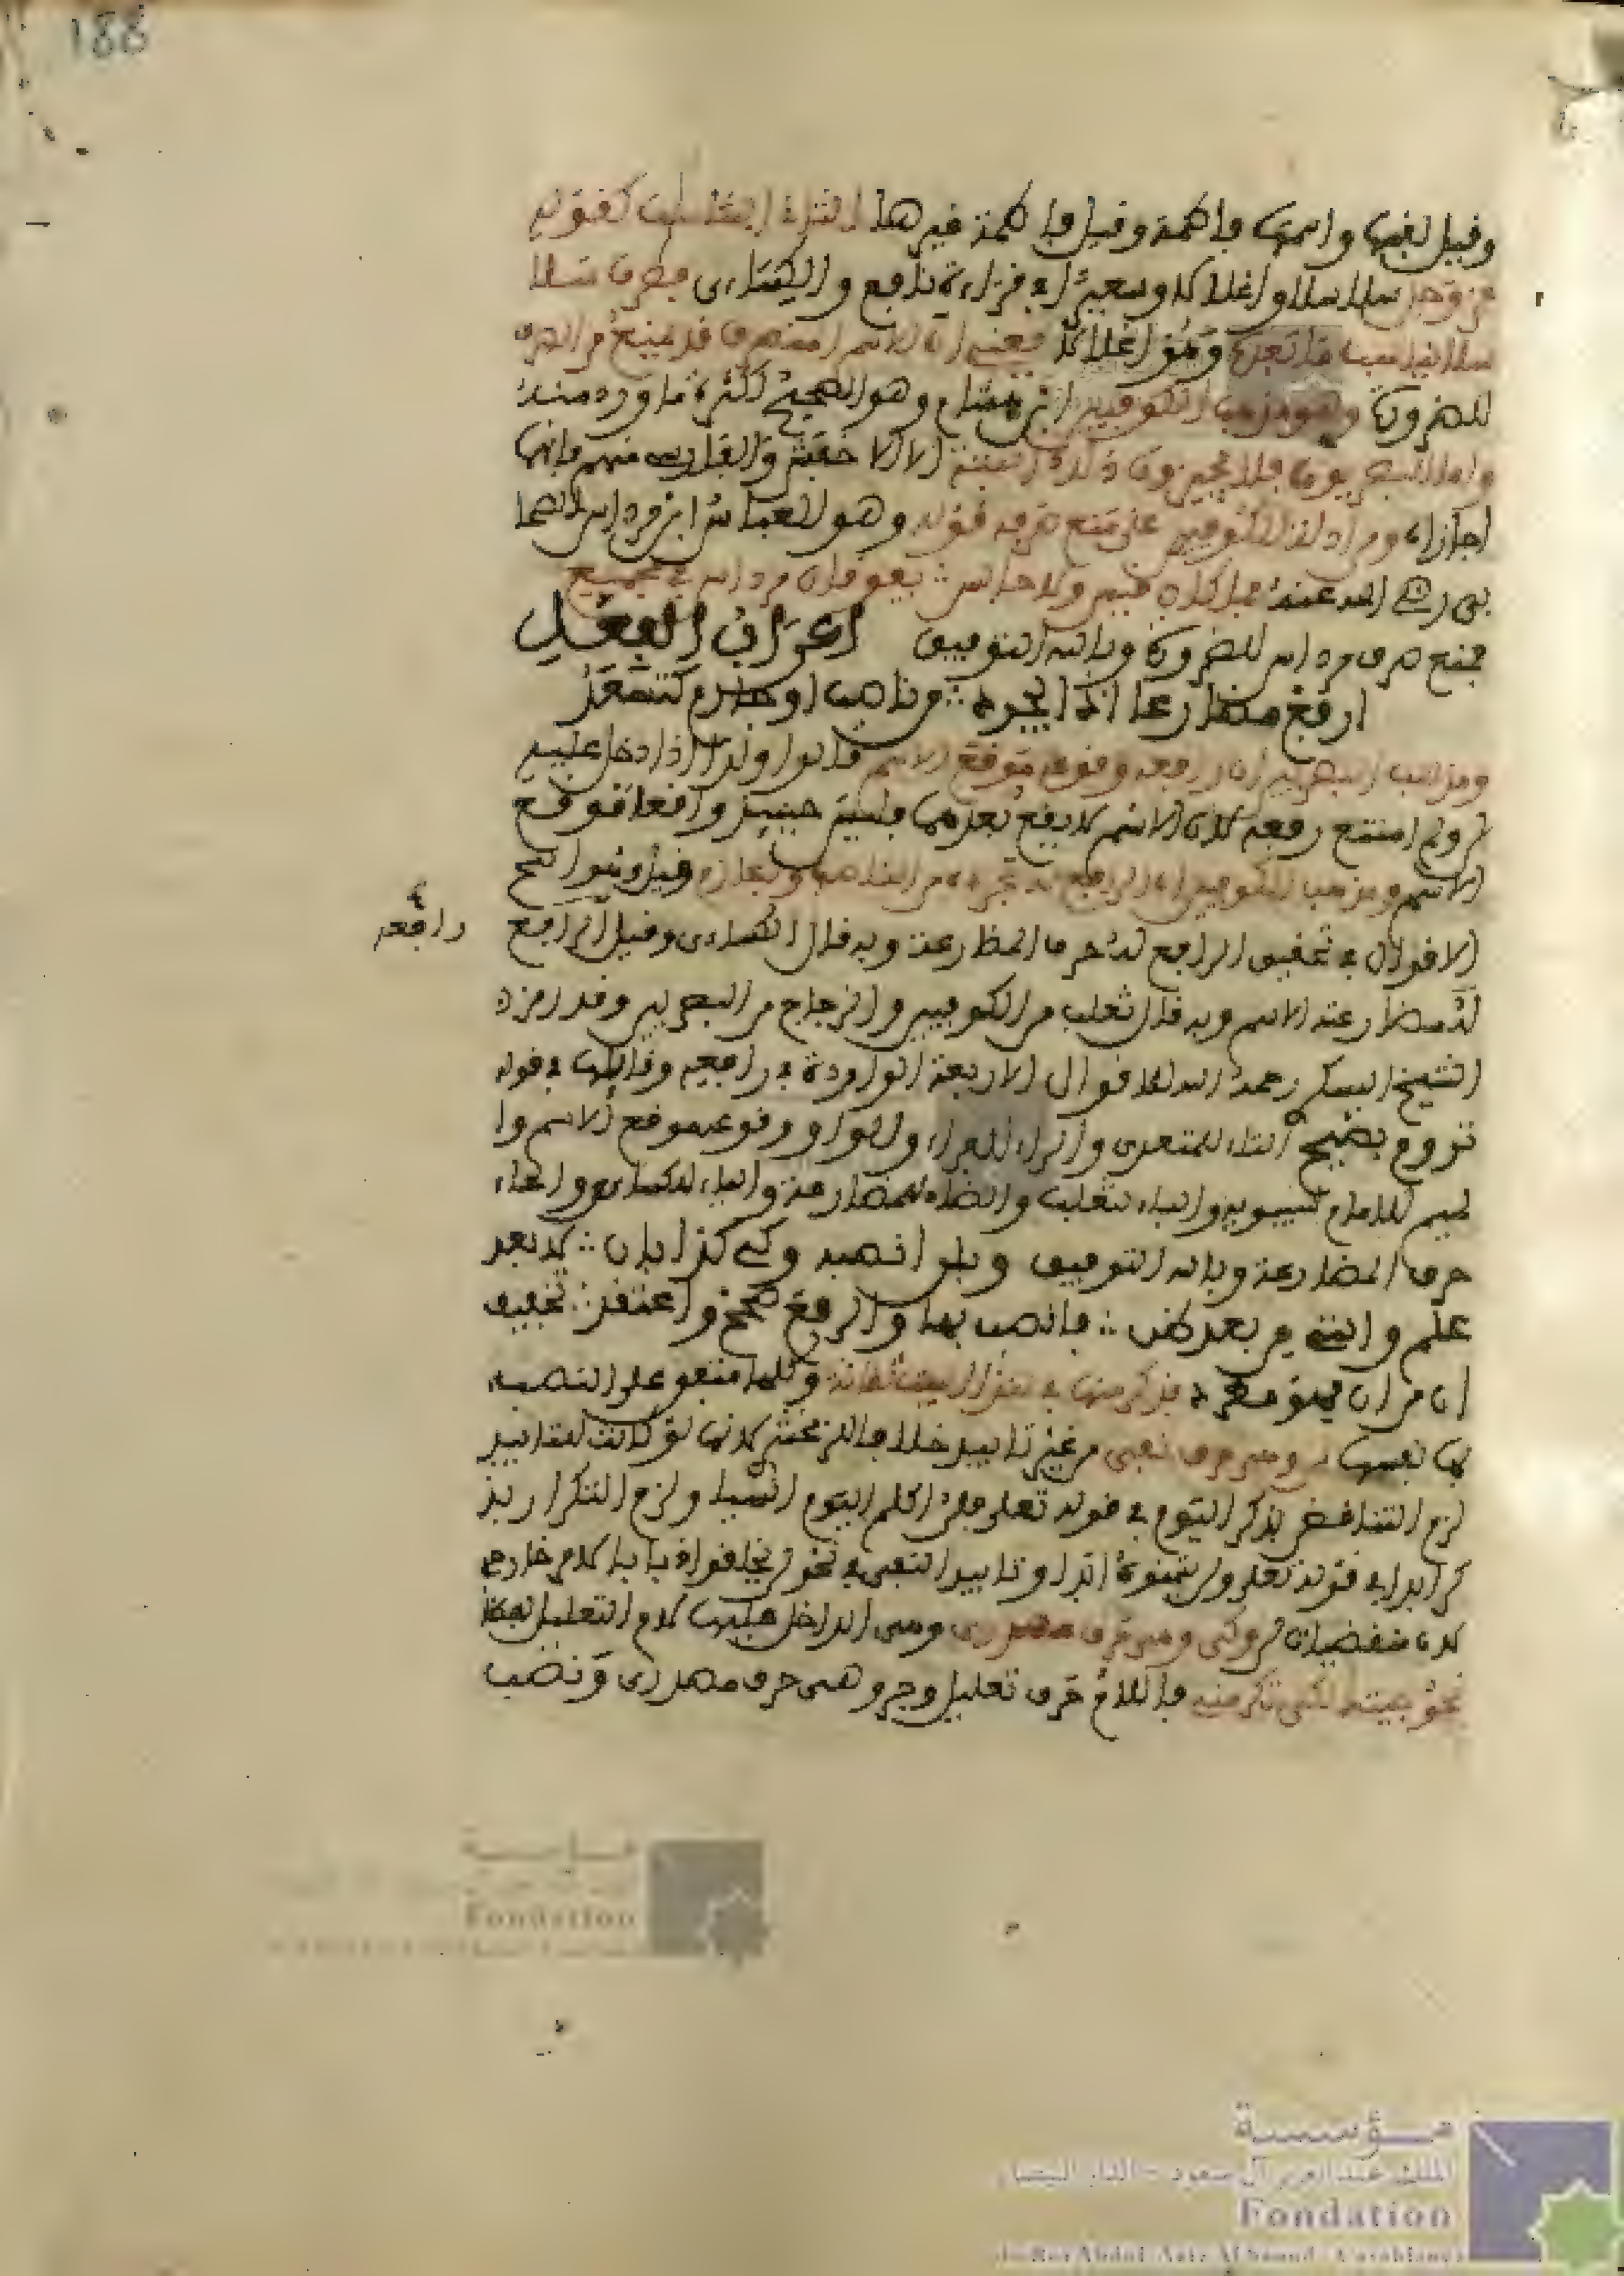 188
وقيل لقبها واسمها فاطمة وقيل فاطمة غيرها التناسب كقوله
عز وجل سلاسلا واغلالا وسعيرا في قراءة نافع والكساءى فصرف سلا
سلا ليناسب ما بعده وهو اغلالا يعنى ان الاسم المنصرف قد يمنع من الصرف
للضرورة وهو مذهب الكوفيين ابن هشام وهو الصحيح لكثرة ما ورد منه
واما البصريون فلا يجيزون ذلك البتة الا الاخفش والفارسى منهم فانهما
اجازاه ومن ادلة الكوفيين على منع صرفه قوله وهو العباس ابن مرداس الصحا
بى رضي الله عنه فما كان حصن ولا حابس ∴ يفوقان مرداس في مجمع
فمنع صرف مرداس للضرورة وبالله التوفيق اعراب الفعل
ارفع مضارعا اذا يجرد ∴ من ناصب او جازم كتسعد
ومذهب البصريين ان رافعه وقوعه موقع الاسم قالوا ولذا اذا دخل عليه
لن ولم امتنع رفعه لان الاسم لا يقع بعدهما فليس حينئذ واقعا موقع
الاسم ومذهب الكوفيين ان الرافع له تجرده من الناصب والجازم قيل وهو اصح
الاقوال في تحقيق الرافع له حرف المظارعة وبه قال الكساءى وقيل الرافع
رافعه
له مضارعته الاسم وبه قال ثعلب من الكوفيين والزجاج من البصريين وقد رمز
الشيخ رحمه الله للاقوال الاربعة الواردة في رافعه وقائلها في قوله
التاء للتعرى والراء للفراء والواو وقوعه موقع الاسم وا
لميم للامام سيبويه والباء لثعلب والضاء للمضارعة والياء للكساءى والحاء
حرف المضارعة وبالله التوفيق وبلن انصبه وكى كذا بان ∴ لا بعد
علم والتى من بعد ظن ∴ فانصب بها والرفع صحح واعتقد ∴ تخفيف
ان من ان فهو مطرد فذكر منها في هذا البيت ثلاثة وكلها متفق على النصب
بها نفسها لن وهى حرف نفى من غير تابيد خلافا للزمخشرى لانها لو كانت للتابيد
لزم التناقض بذكر اليوم في قوله تعلى فلن اكلم اليوم انسيا ولزم التكرار بذ
كر ابدا في قوله تعلى ولن يتمنوه ابدا وتابيد النفى في نحو لن يخلقوا ذبابا لامر خارجى
لا من مقتضيات لن وكى وهى حرف مصدرى وهى الداخل عليها لام التعليل لفظا
نحو جيتك لكى تكرمنى فاللام حرف تعليل وجر وهى حرف مصدرى ونصب
مؤسسة
الملك عبد العزيز آل سعود - الدار البيضاء
Fondation
du Roi Abdul-Aziz Al Saoud Casablanca